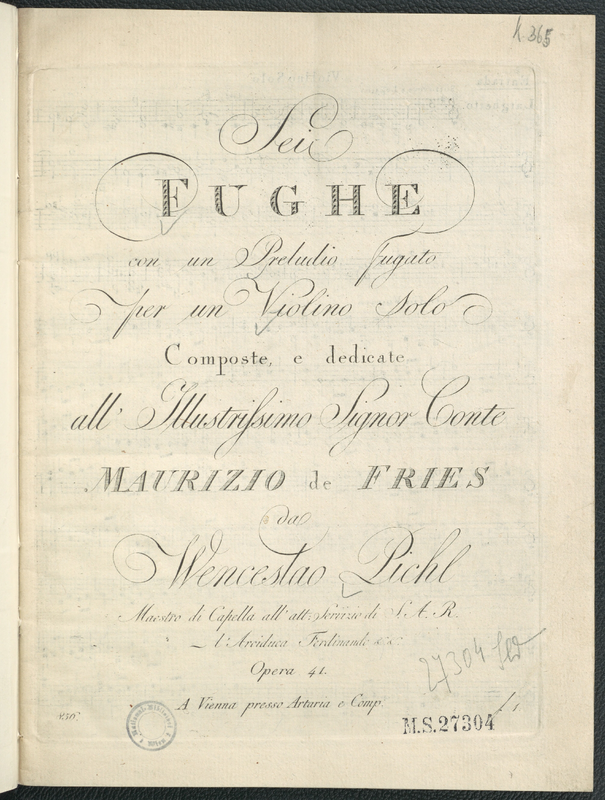 K 365
Sei
FUGHE
con un Preludio fugato
per un Violino solo
Composte, e dedicate
all' Illustrissimo Signor Conte
MAURIZIO de FRIES
da
Wenceslao Pichl
Maestro di Capella all' att: Servizio di S. A. R.
L'Arciduca Ferdinando &c. &c.
Opera 41.
A Vienna presso Artaria e Comp.
27304
M.S. 27304